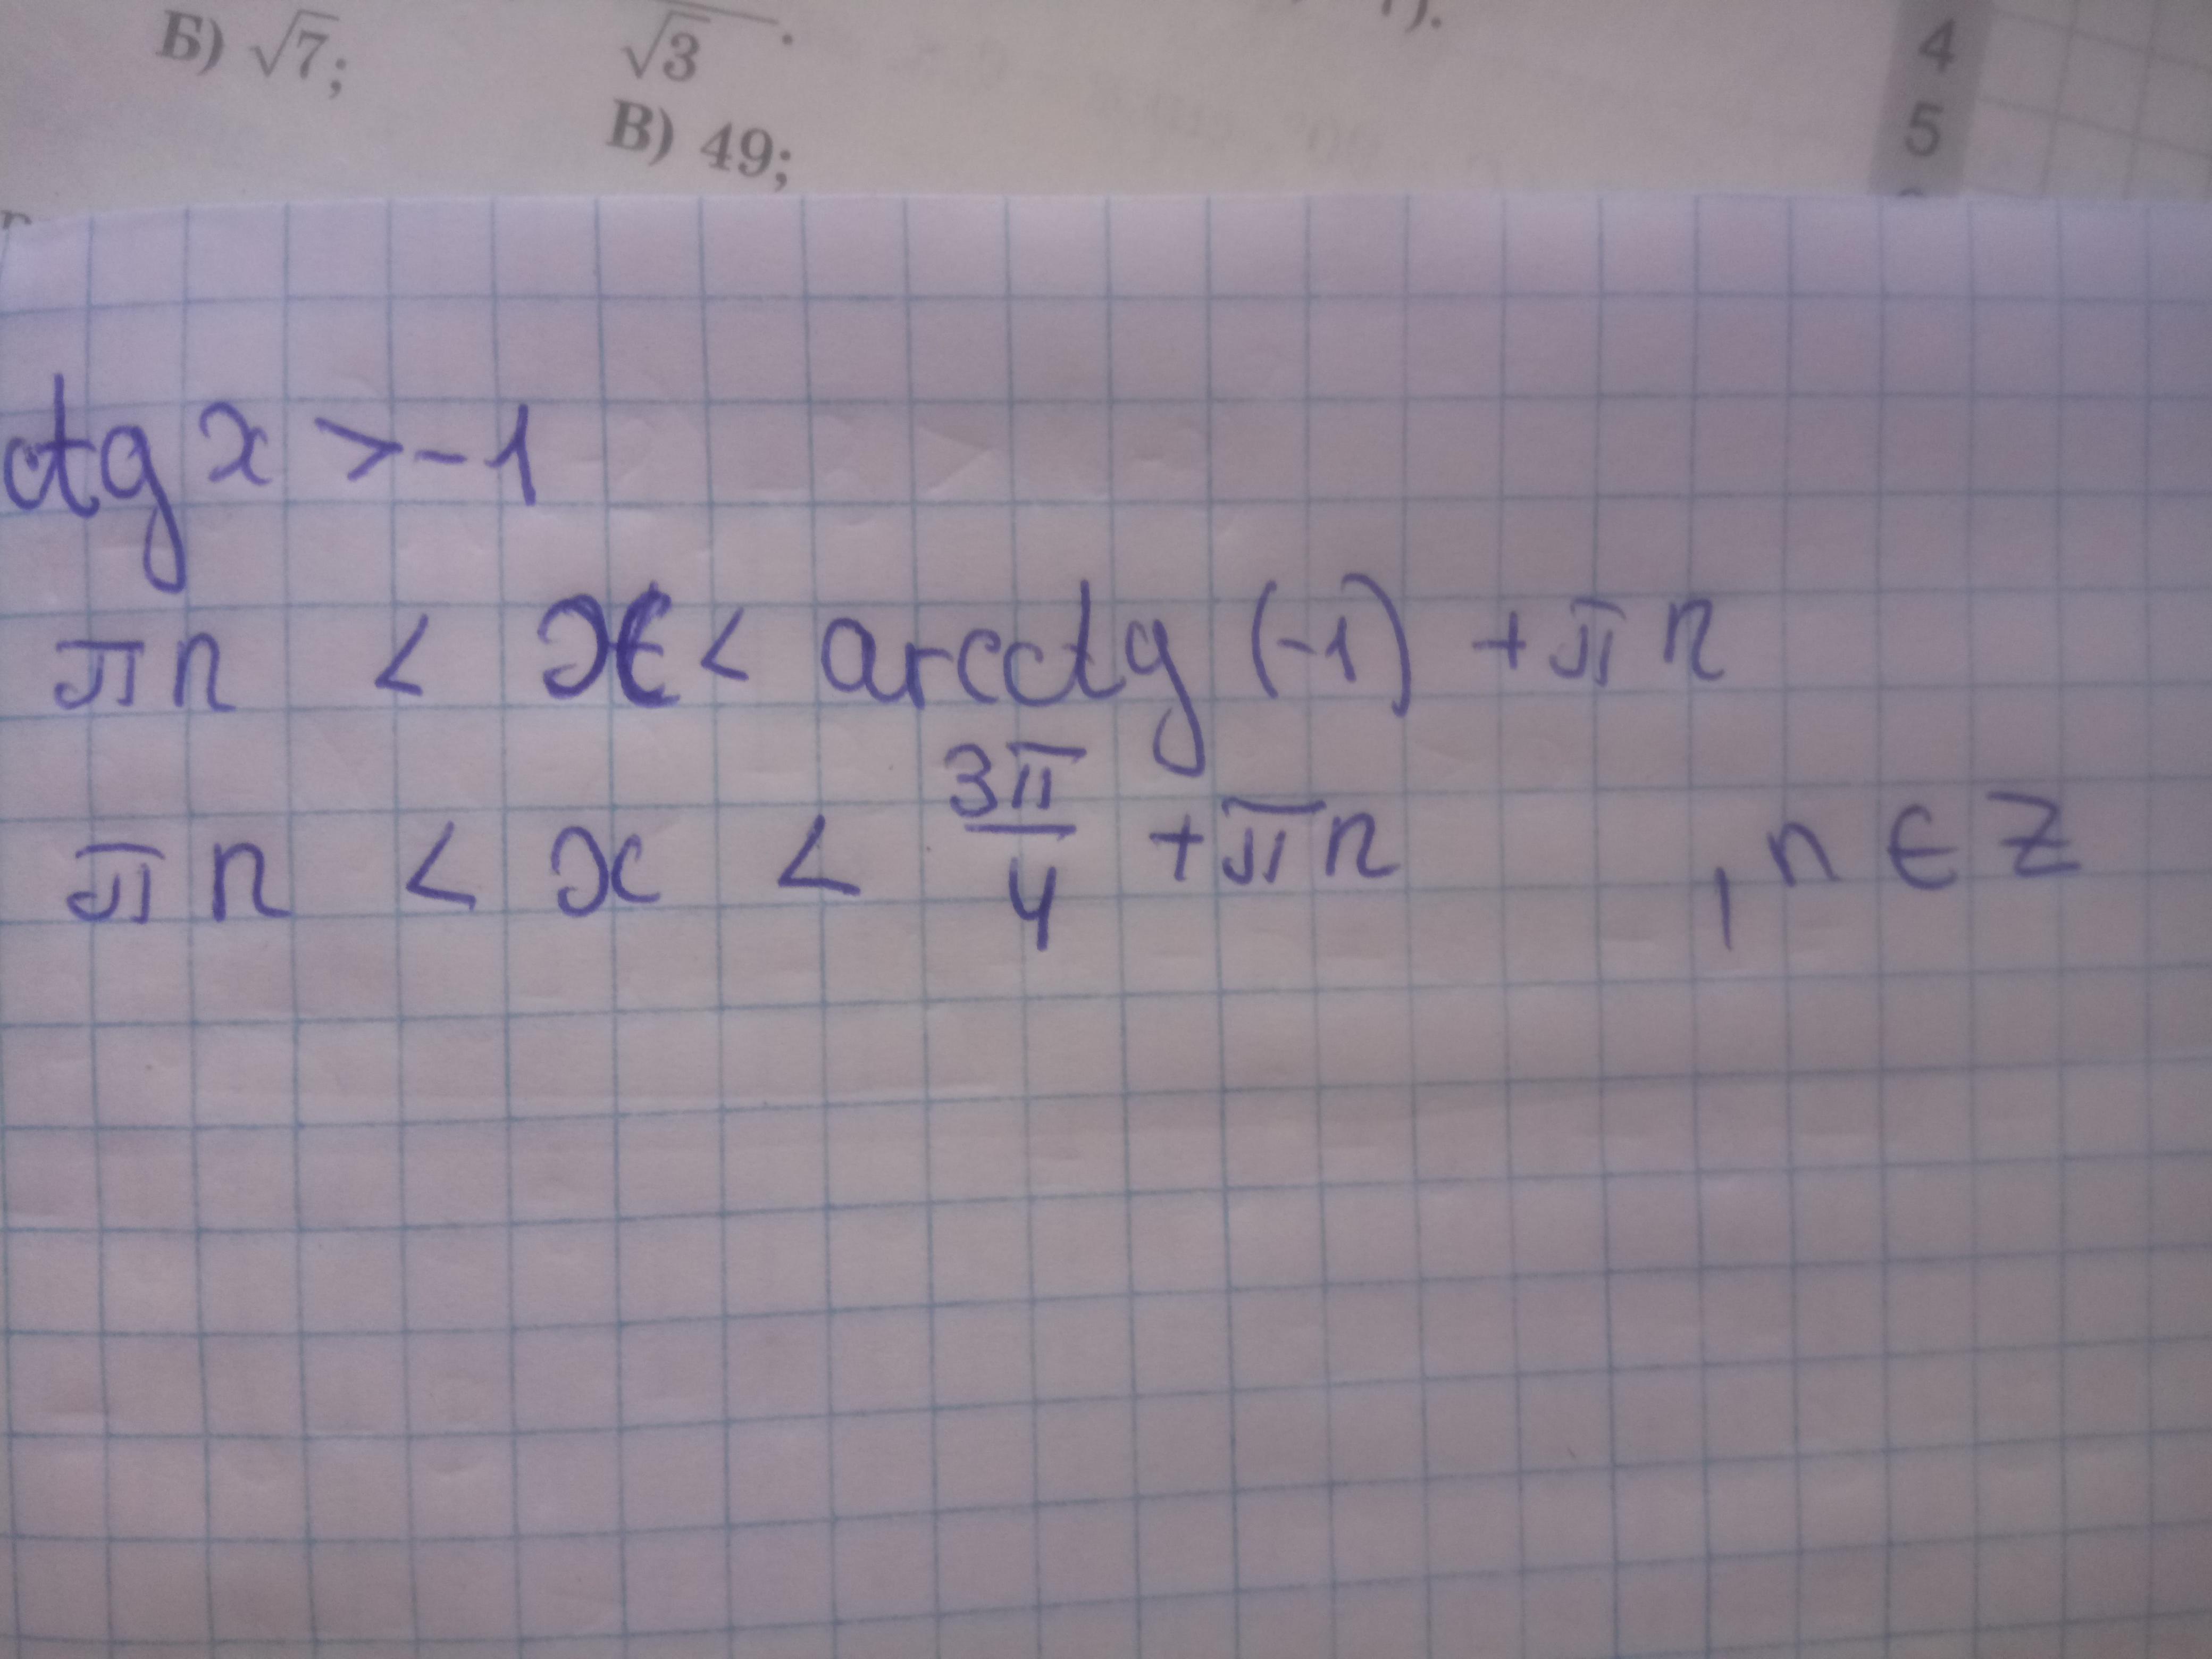 Б) √7;
√3.
В) 49;
4
5
ctg x > -1
πn < x < arcctg (-1) + πn
πn < x < 3π/4 + πn , n ∈ Z